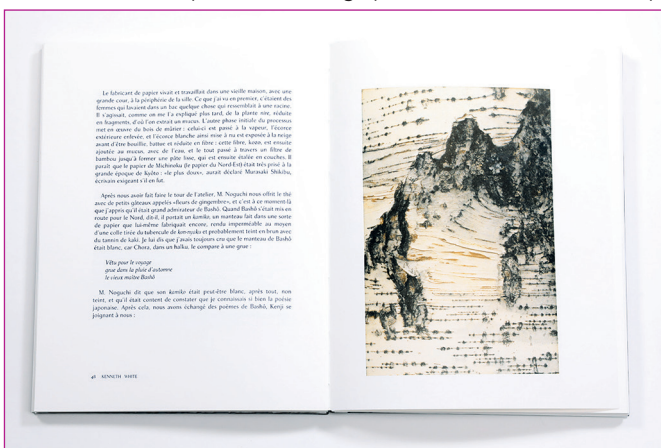 Le fabricant de papier vivait et travaillait dans une vieille maison, avec une
grande cour, à la périphérie de la ville. Ce que j'ai vu en premier, c'étaient des
femmes qui lavaient dans un bac quelque chose qui ressemblait à une racine.
Il s'agissait, comme on me l'a expliqué plus tard, de la plante nire, réduite
en fragments, d'où l'on extrait un mucus. L'autre phase initiale du processus
met en œuvre du bois de mûrier : celui-ci est passé à la vapeur, l'écorce
extérieure enlevée, et l'écorce blanche ainsi mise à nu est exposée à la neige
avant d'être bouillie, battue et réduite en fibre ; cette fibre, kozo, est ensuite
ajoutée au mucus, avec de l'eau, et le tout passé à travers un filtre de
bambou jusqu'à former une pâte lisse, qui est ensuite étalée en couches. Il
paraît que le papier de Michinoku (le papier du Nord-Est) était très prisé à la
grande époque de Kyôto : «le plus doux», aurait déclaré Murasaki Shikibu,
écrivain exigeant s'il en fut.
Après nous avoir fait faire le tour de l'atelier, M. Noguchi nous offrit le thé
avec de petits gâteaux appelés «fleurs de gingembre», et c'est à ce moment-là
que j'appris qu'il était grand admirateur de Bashô. Quand Bashô s'était mis en
route pour le Nord, dit-il, il portait un kamiko, un manteau fait dans une sorte
de papier que lui-même fabriquait encore, rendu imperméable au moyen
d'une colle tirée du tubercule de kon-nyaku et probablement teint en brun avec
du tannin de kaki. Je lui dis que j'avais toujours cru que le manteau de Bashô
était blanc, car Chora, dans un haïku, le compare à une grue :
Vêtu pour le voyage
grue dans la pluie d'automne
le vieux maître Bashô
M. Noguchi dit que son kamiko était peut-être blanc, après tout, non
teint, et qu'il était content de constater que je connaissais si bien la poésie
japonaise. Après cela, nous avons échangé des poèmes de Bashô, Kenji se
joignant à nous :
KENNETH WHITE